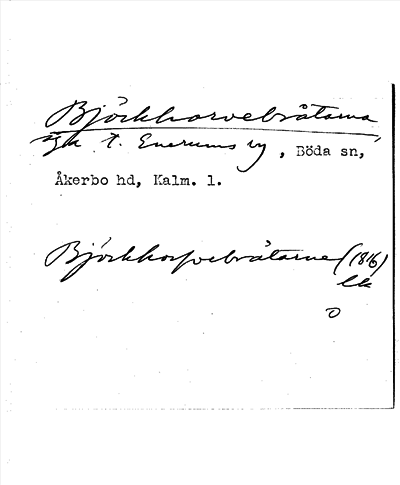 Björkhorvebråtarna
ägk t. Enerums by, Böda sn,
Åkerbo hd, Kalm. l.
Björkhorfvebråtarne (1816)
lk
O